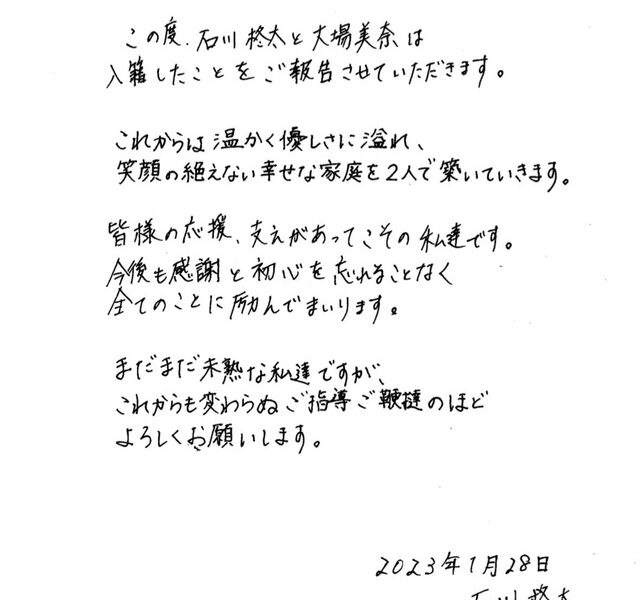 この度、石川柊太と大場美奈は
入籍したことをご報告させていただきます。
これからは温かく優しさに溢れ、
笑顔の絶えない幸せな家庭を2人で築いていきます。
皆様の応援、支えがあってこその私達です。
今後も感謝と初心を忘れることなく
全てのことに励んでまいります。
まだまだ未熟な私達ですが、
これからも変わらぬご指導ご鞭撻のほど
よろしくお願いします。
2023年1月28日
石川柊太